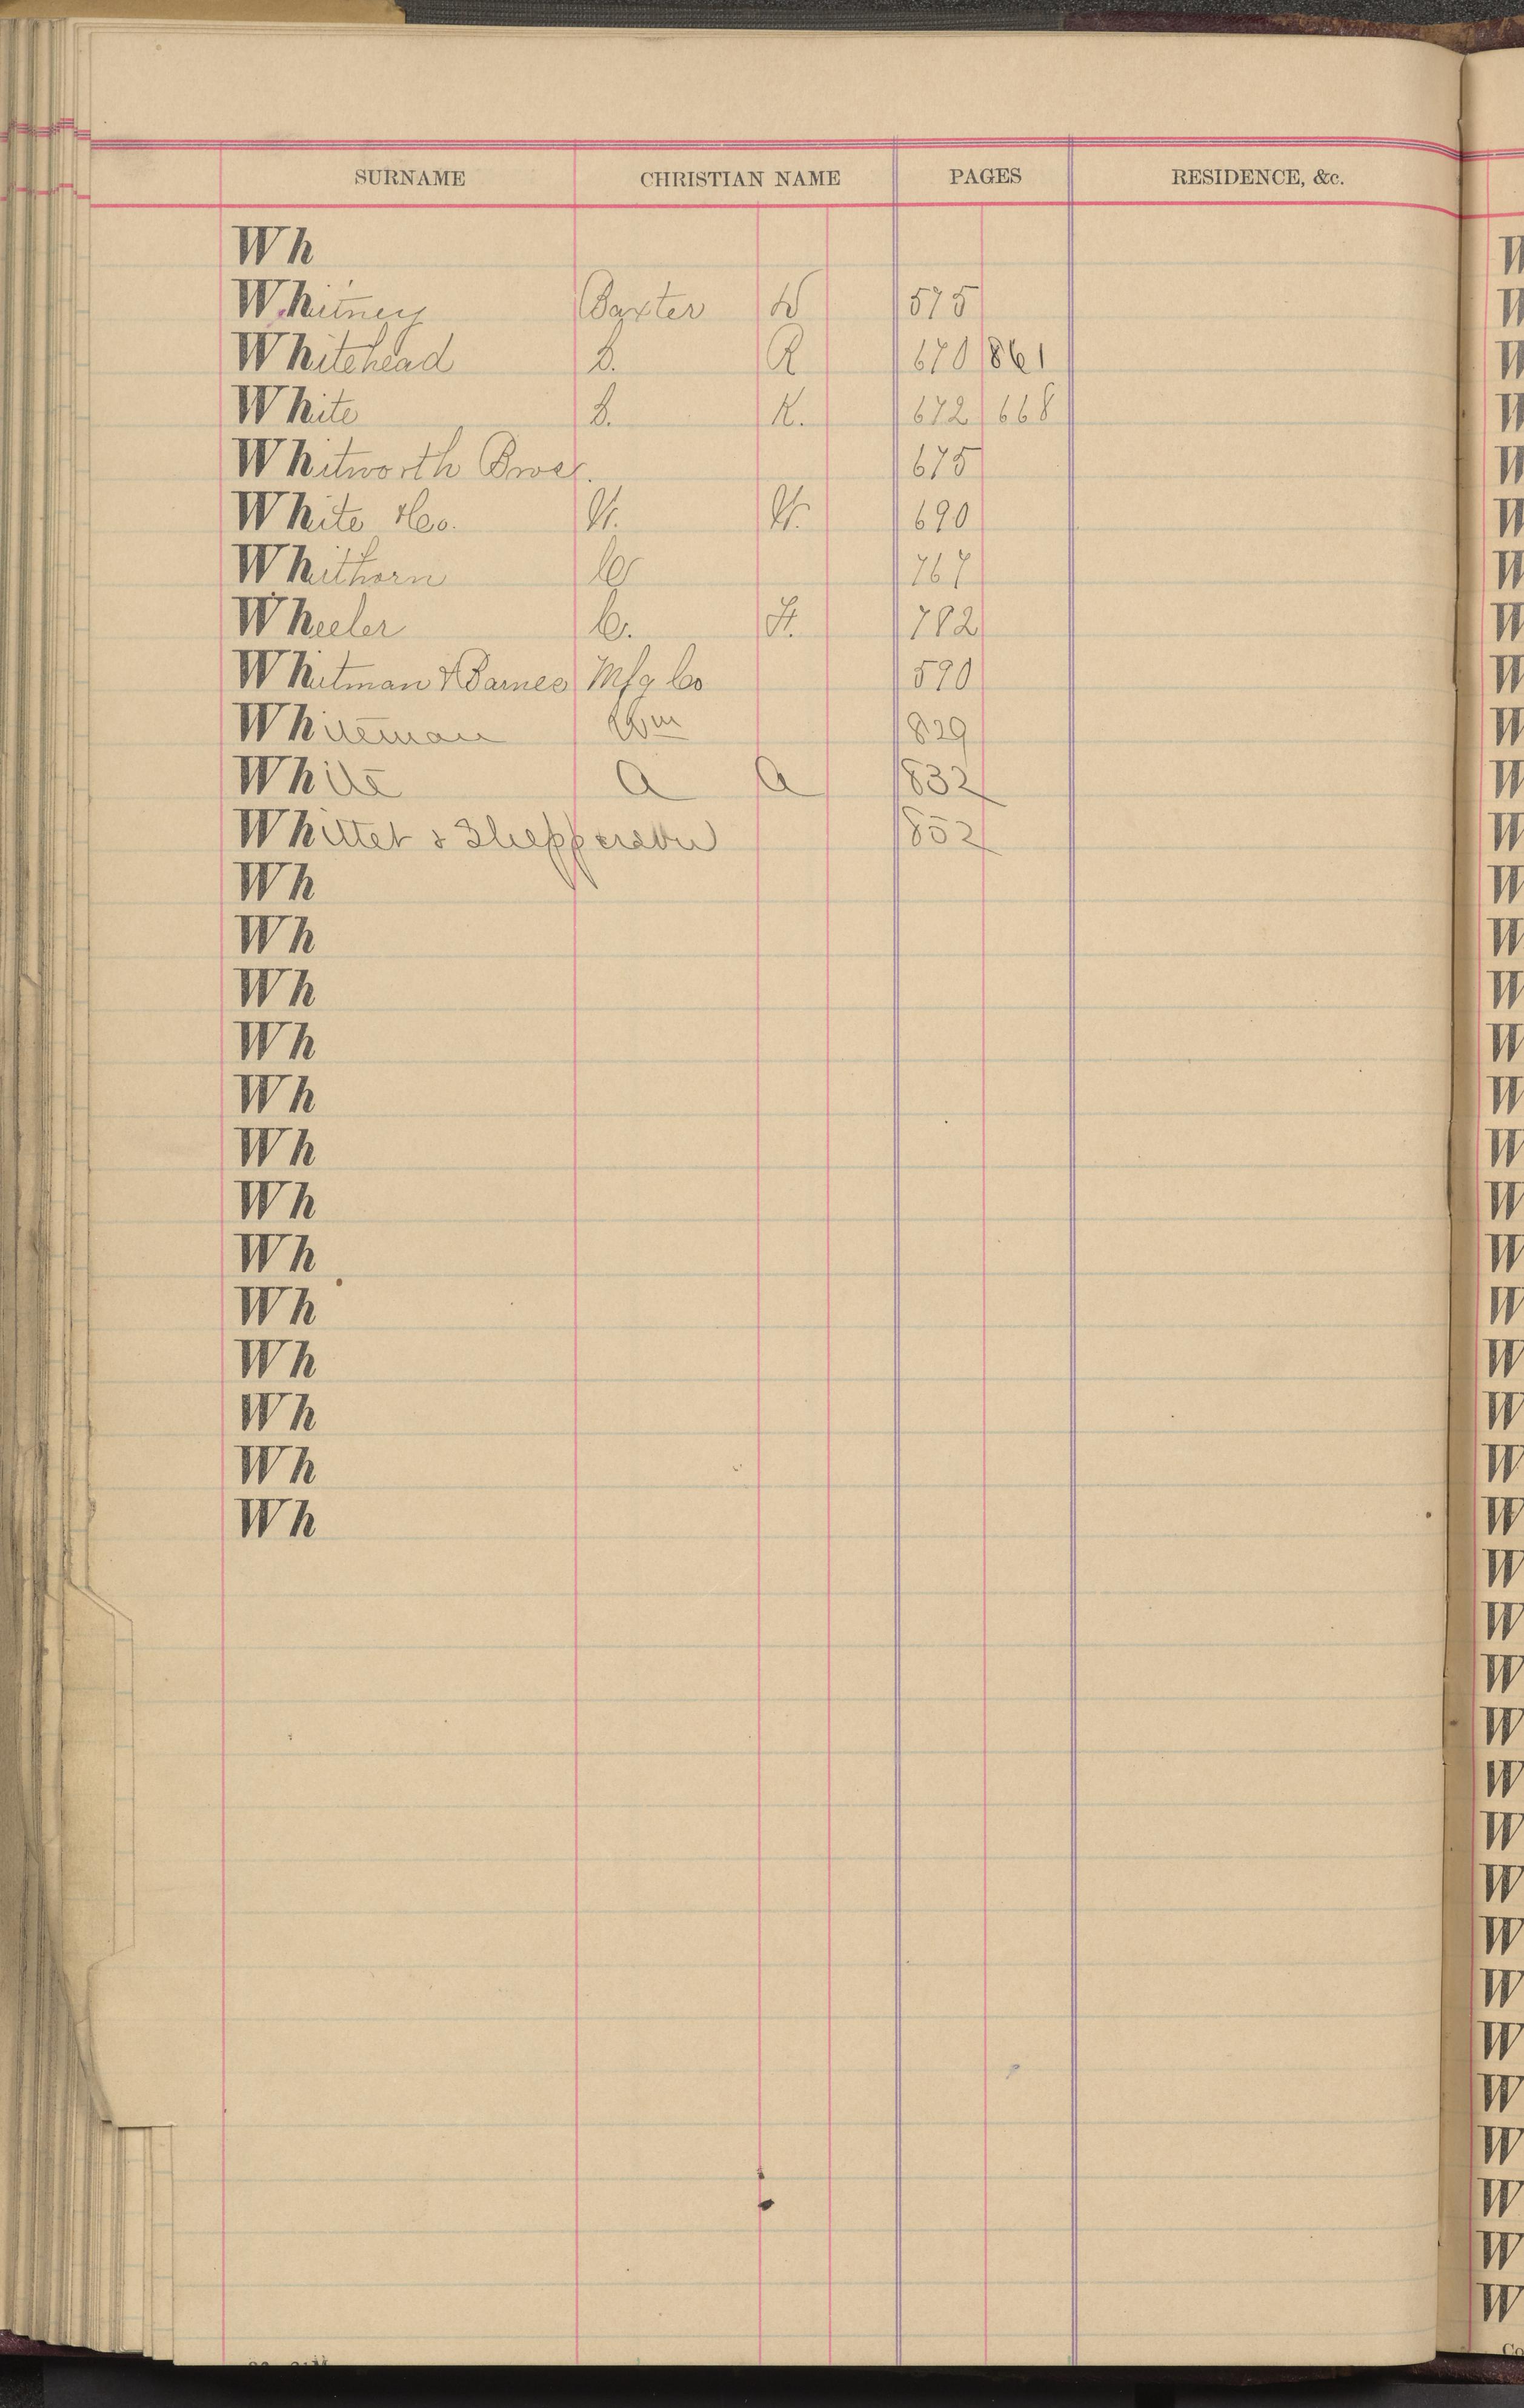 SURNAME CHRISTIAN NAME PAGES RESIDENCE, &c.
Wh
Whitney Baxter D 575
Whitehead B. R 670 861
White B. K. 672 668
Whitworth Bros. 675
White & Co. 690
Whithorn C 767
Wheeler C. H. 792
Whitman & Barnes Mfg Co 590
Whiteman Wm 829
White A A 832
Whittet & Shepperson 852
Wh
Wh
Wh
Wh
Wh
Wh
Wh
Wh
Wh
Wh
Wh
Wh
Wh